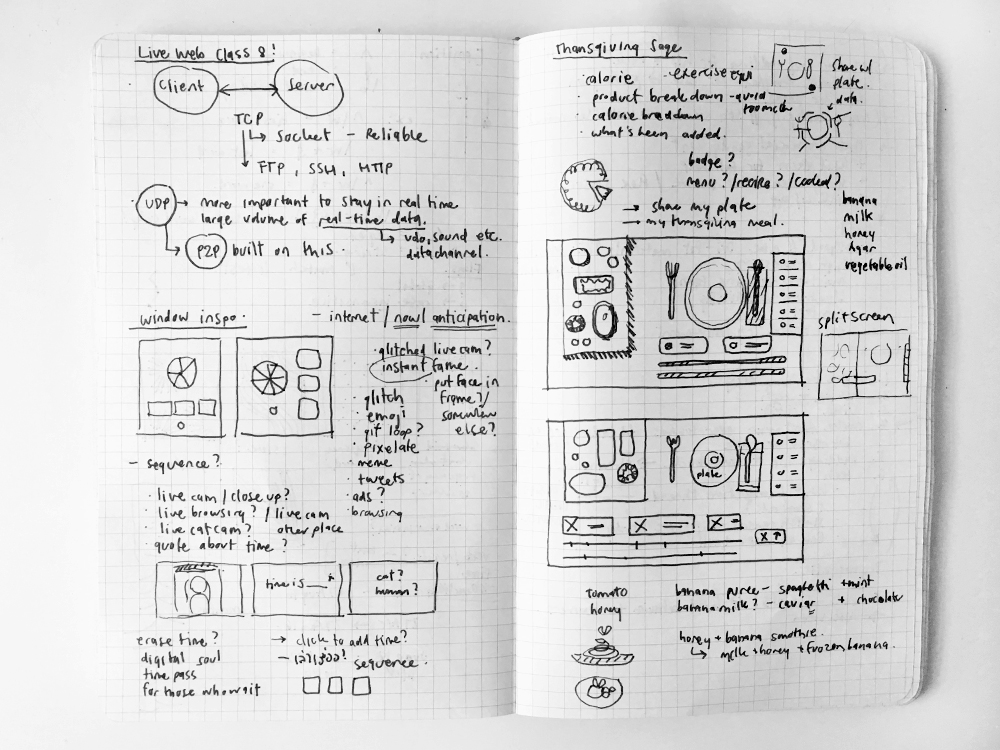 Live Web Class 8!
Client
Server
TCP
↳ Socket – Reliable
FTP, SSH, HTTP
UDP → more important to stay in real time
large volume of real-time data.
↳ vdo, sound etc.
datachannel.
P2P built on this.
window inspo.
– internet / now! anticipation.
· glitched live cam?
instant fame.
· put face in
frame?/
somewhere
else?
· glitch
· emoji
· gif loop?
· pixelate
· meme
· tweets
· ads?
· browsing
– sequence?
· live cam / close up?
· live browsing? / live cam
other place
· live cat cam?
· quote about time?
time is ___"
cat?
human?
erase time?
digital soul
time pass
for those who wait
→ click to add time?
sequence.
Thansgiving Sage
· calorie
· product breakdown – avoid
too much
· calorie breadown
· what's been added.
share w/
plate
data.
badge?
menu? / recipe? / coded?
→ share my plate
→ my thansgiving meal.
banana
milk
honey
Agar
vegetable oil
splitscreen
plate
tomato
honey
banana puree – spaghetti + mint
banana milk? – caviar + chocolate
honey + banana smothie.
↳ milk + honey + frozen banana.